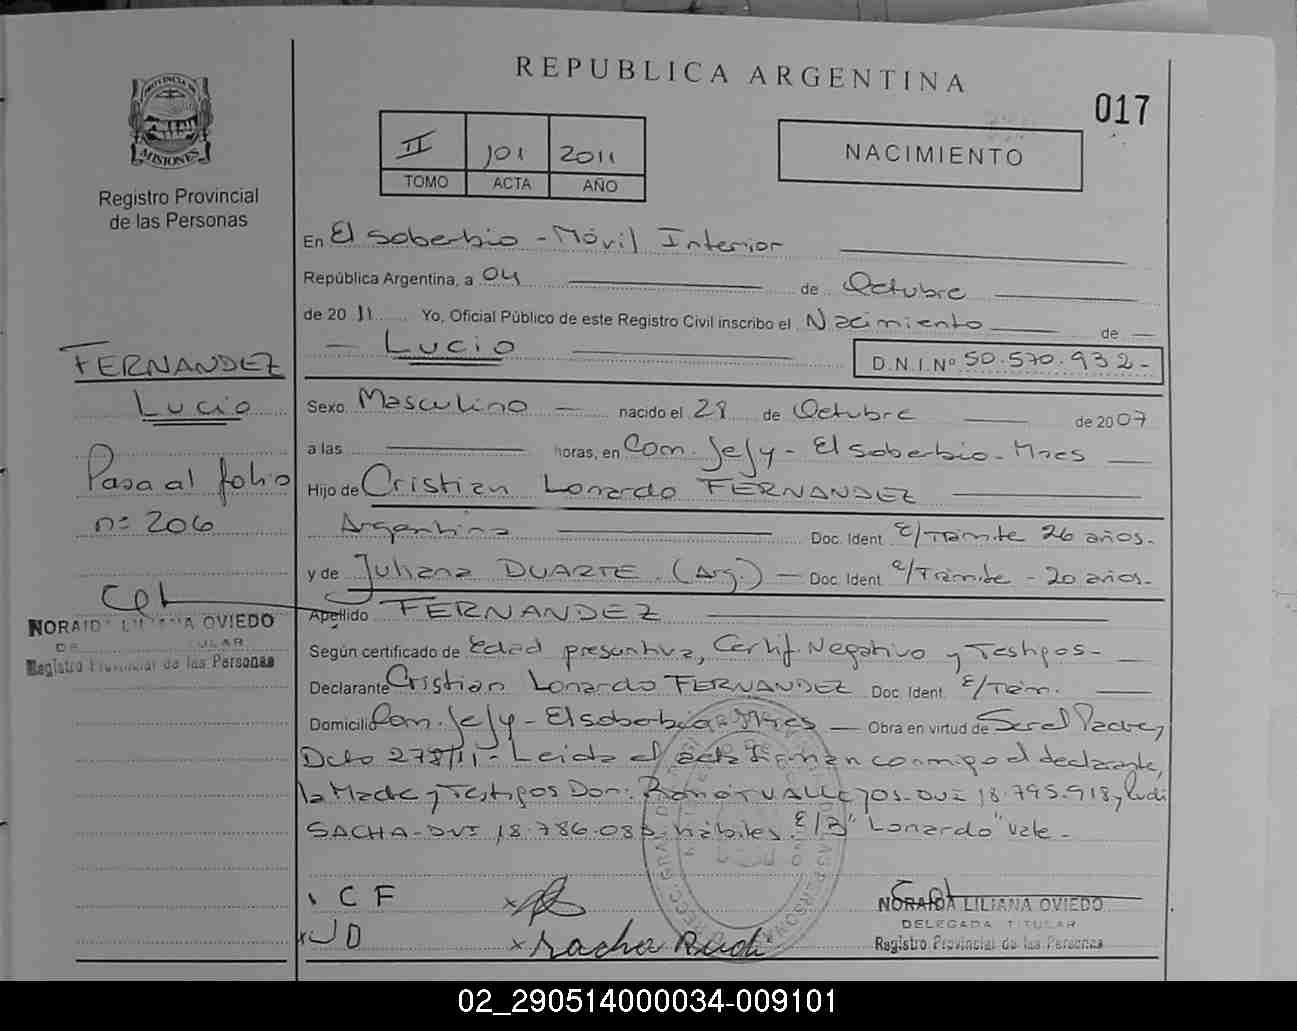 REPUBLICA ARGENTINA
017
PROVINCIA DE
MISIONES
Registro Provincial
de las Personas
II 101 2011
TOMO ACTA AÑO
NACIMIENTO
En El Soberbio - Móvil Interior
República Argentina, a 04 de Octubre
de 2011 Yo, Oficial Público de este Registro Civil inscribo el Nacimiento de
Lucio
D.N.I.Nº 50.570.932-
FERNANDEZ
Lucio
Pasa al folio
nº 206
NORAIDA LILIANA OVIEDO
Registro Provincial de las Personas
Sexo Masculino nacido el 28 de Octubre de 2007
a las horas, en Com. Jejy - El Soberbio - Mnes
Hijo de Cristian Lonardo FERNANDEZ
Argentina Doc. Ident. E/Trámite 26 años.
y de Juliana DUARTE (Arg.) - Doc. Ident. e/Trámite - 20 años-
Apellido FERNANDEZ
Según certificado de Edad presuntiva, Certif. Negativo y Testigos-
Declarante Cristian Lonardo FERNANDEZ Doc. Ident. E/Trám.
Domicilio Com. Jejy - El Soberbio - Mnes - Obra en virtud de Ser el Padre y
Dcto 278/11 - Leida el acta firman conmigo el declarante,
la Madre y Testigos Don: Ramón VALLEJOS-DNI 18.795.918 y Rudi
SACHA-DNI 18.786.083 hábiles. E/R "Lonardo" vale-
C F
J D
Sacha Rudi
NORAIDA LILIANA OVIEDO
DELEGADA TITULAR
Registro Provincial de las Personas
02_290514000034-009101